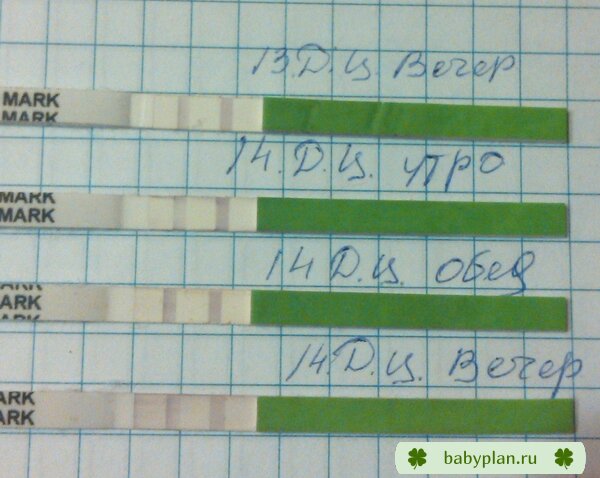 13 Д.Ц. Вечер
MARK
MARK
14. Д.Ц. утро
MARK
MARK
14 Д.Ц. обед
ARK
ARK
ARK
14 Д.Ц. Вечер
ARK
ARK
babyplan.ru